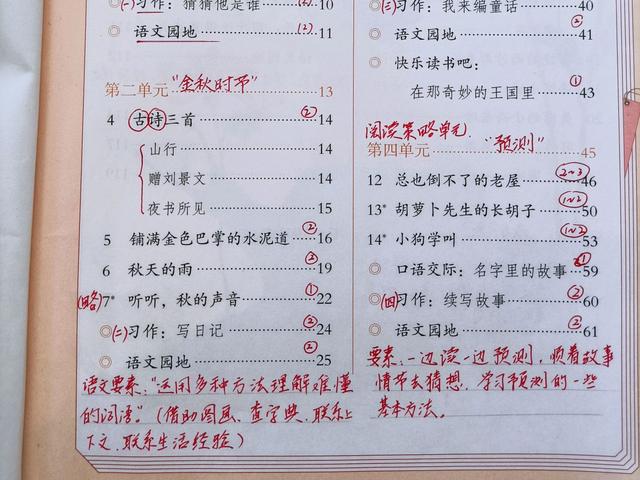 (一)习作：猜猜他是谁 (2) 10
语文园地 (2) 11
第二单元 "金秋时节" 13
4 古诗三首 ② 14
山行 14
赠刘景文 14
夜书所见 15
5 铺满金色巴掌的水泥道 ② 16
6 秋天的雨 ② 19
(略) 7* 听听，秋的声音 ① 22
(二)习作：写日记 ② 24
语文园地 ② 25
语文要素："运用多种方法理解难懂
的词语"。（借助图画、查字典、联系上
下文、联系生活经验）
(三)习作：我来编童话 40
语文园地 ② 41
快乐读书吧：
在那奇妙的王国里 ① 43
阅读策略单元. "预测"
第四单元 45
12 总也倒不了的老屋 2~3 46
13* 胡萝卜先生的长胡子 1~2 50
14* 小狗学叫 1~2 53
口语交际：名字里的故事 ① 59
(四)习作：续写故事 ② 60
语文园地 ② 61
要素：一边读一边预测，顺着故事
情节去猜想。学习预测的一些
基本方法。